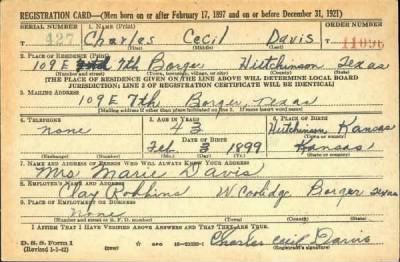 REGISTRATION CARD—(Men born on or after February 17, 1897 and on or before December 31, 1921)
SERIAL NUMBER 1. NAME (Print) ORDER NUMBER
U 427 Charles Cecil Davis 11096
(First) (Middle) (Last)
2. PLACE OF RESIDENCE (Print)
109 E 7th Borger Hutchinson Texas
(Number and street) (Town, township, village, or city) (County) (State)
[THE PLACE OF RESIDENCE GIVEN ON THE LINE ABOVE WILL DETERMINE LOCAL BOARD
JURISDICTION; LINE 2 OF REGISTRATION CERTIFICATE WILL BE IDENTICAL]
3. MAILING ADDRESS
109 E 7th Borger, Texas
[Mailing address if other than place indicated on line 2. If same insert word same]
4. TELEPHONE 5. AGE IN YEARS 6. PLACE OF BIRTH
none 43 Hutchinson Kansas
DATE OF BIRTH (Town or county)
Feb 3 1899 Kansas
(Exchange) (Number) (Mo.) (Day) (Yr.) (State or country)
7. NAME AND ADDRESS OF PERSON WHO WILL ALWAYS KNOW YOUR ADDRESS
Mrs Marie Davis
8. EMPLOYER'S NAME AND ADDRESS
Ray Robbins W. Coolidge Borger Texas
9. PLACE OF EMPLOYMENT OR BUSINESS
None
(Number and street or R. F. D. number) (Town) (County) (State)
I AFFIRM THAT I HAVE VERIFIED ABOVE ANSWERS AND THAT THEY ARE TRUE.
D. S. S. Form 1
(Revised 4-1-42) (over) Charles Cecil Davis